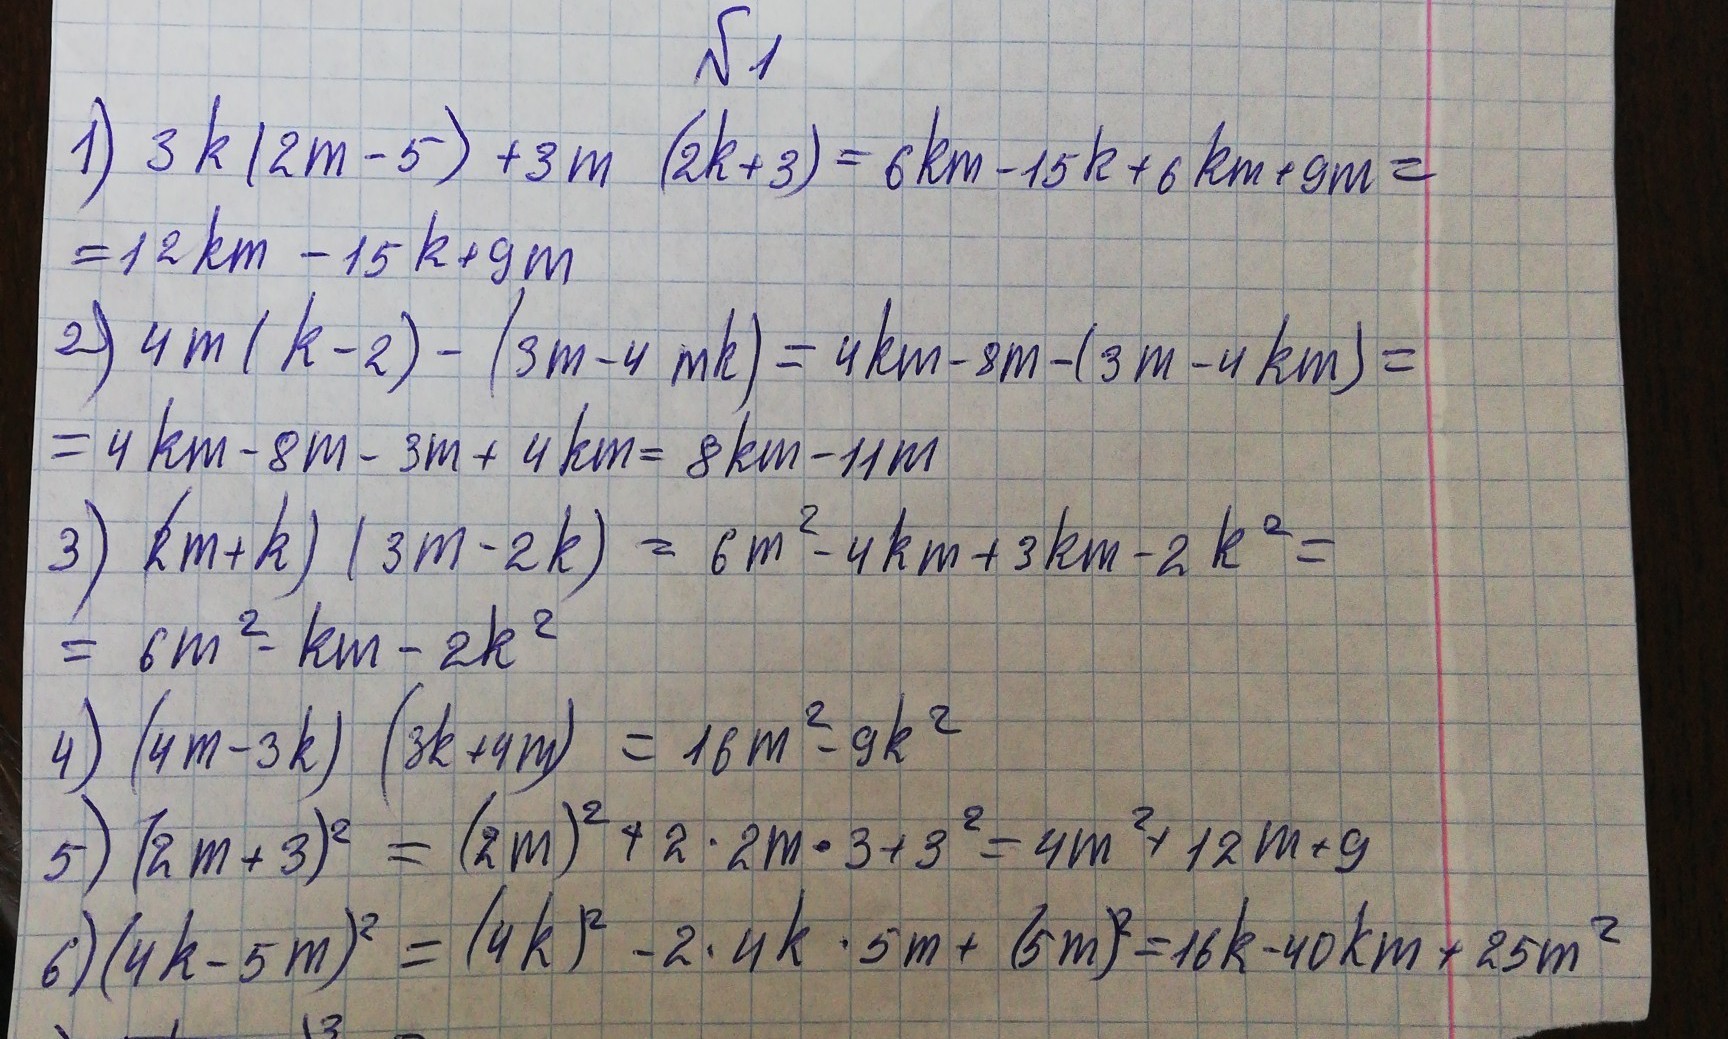 №1
1) 3k(2m-5)+3m (2k+3)=6km-15k+6km+9m=
=12km-15k+9m
2) 4m(k-2)-(3m-4mk)=4km-8m-(3m-4km)=
=4km-8m-3m+4km=8km-11m
3) (2m+k)(3m-2k)=6m²-4km+3km-2k²=
=6m²-km-2k²
4) (4m-3k)(3k+4m)=16m²-9k²
5) (2m+3)²=(2m)²+2·2m·3+3²=4m²+12m+9
6) (4k-5m)²=(4k)²-2·4k·5m+(5m)²=16k-40km+25m²